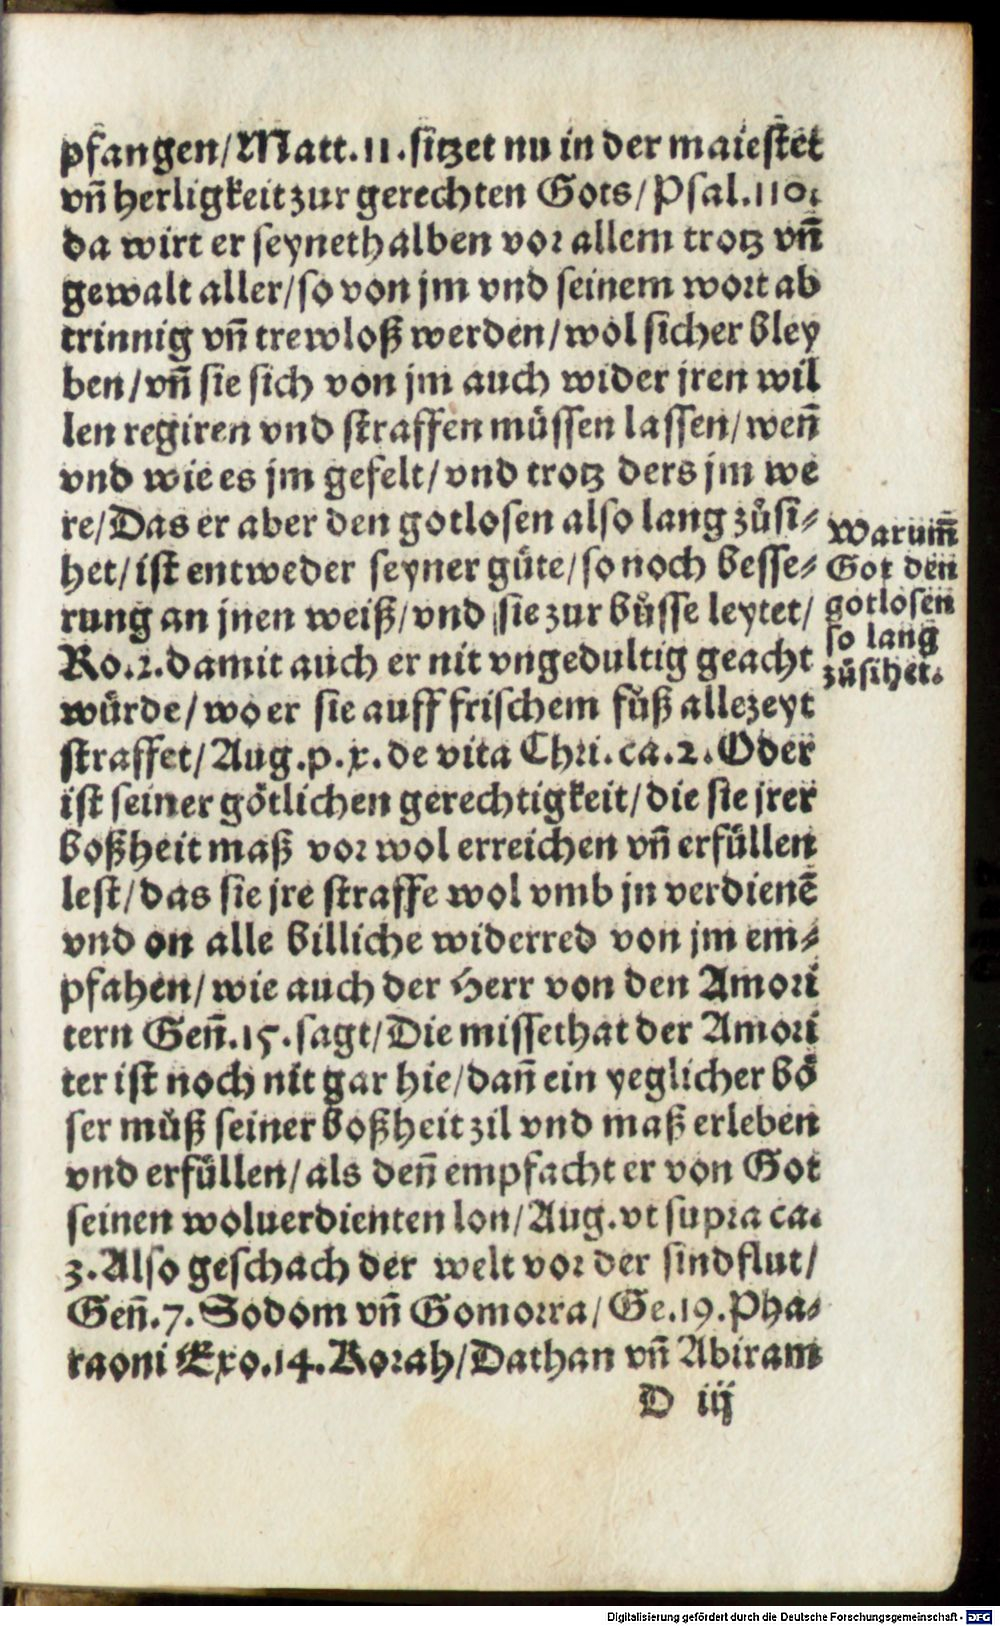 pfangen/Matt.11.sitzet nu in der maiestet
vñ herligkeit zur gerechten Gots/Psal.110.
da wirt er seynethalben vor allem trotz vñ
gewalt aller/so von jm vnd seinem wort ab
trinnig vñ trewloß werden/wol sicher bley
ben/vñ sie sich von jm auch wider jren wil
len regiren vnd straffen müssen lassen/weñ
vnd wie es jm gefelt/vnd trotz ders jm we
re/Das er aber den gotlosen also lang zůsi-
het/ist entweder seyner güte/so noch besse-
rung an jnen weiß/vnd sie zur bůsse leytet/
Ro.2.damit auch er nit vngedultig geacht
würde/wo er sie auff frischem fůß allezeyt
straffet/Aug.p.x.de vita Chri.ca.2.Oder
ist seiner götlichen gerechtigkeit/die sie jrer
boßheit maß vor wol erreichen vñ erfüllen
lest/das sie jre straffe wol vmb jn verdienē
vnd on alle billiche widerred von jm em-
pfahen/wie auch der Herr von den Amori
tern Geñ.15.sagt/Die missethat der Amori
ter ist noch nit gar hie/dañ ein yeglicher bö
ser můß seiner boßheit zil vnd maß erleben
vnd erfüllen/als deñ empfacht er von Got
seinen woluerdienten lon/Aug.vt supra ca.
3.Also geschach der welt vor der sindflut/
Geñ.7.Sodom vñ Gomorra/Ge.19.Pha-
raoni Exo.14.Korah/Dathan vñ Abiram
D iij
Warum̃
Got den
gotlosen
so lang
zůsihet.
Digitalisierung gefördert durch die Deutsche Forschungsgemeinschaft - DFG